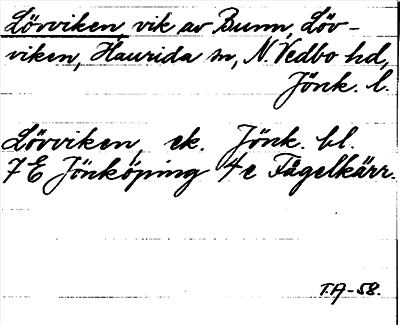 Lövviken, vik av Bunn, Löv-
viken, Haurida sn, N. Vedbo hd,
Jönk. l.
Lövviken, ek. Jönk. bl.
7 E Jönköping 4 e Fågelkärr.
T.A-58.